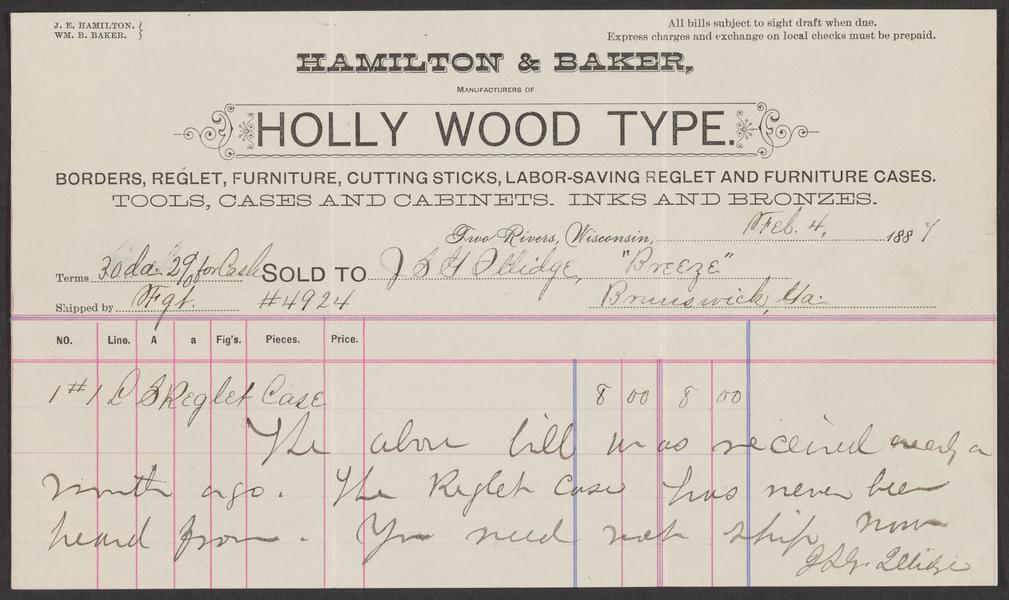 J. E. HAMILTON. }
WM. B. BAKER. }
All bills subject to sight draft when due.
Express charges and exchange on local checks must be prepaid.
HAMILTON & BAKER,
MANUFACTURERS OF
HOLLY WOOD TYPE.
BORDERS, REGLET, FURNITURE, CUTTING STICKS, LABOR-SAVING REGLET AND FURNITURE CASES.
TOOLS, CASES AND CABINETS. INKS AND BRONZES.
Two Rivers, Wisconsin, Feb. 4, 1887
Terms 30 da. 2% for Cash SOLD TO J S G Illidge, "Breeze"
Shipped by Fgt. #4924 Brunswick, Ga.
NO. Line. A a Fig's. Pieces. Price.
1 #1 L S Reglet Case 8 00 8 00
The above bill was received nearly a
month ago. The Reglet Case has never been
heard from. You need not ship now
Illidge